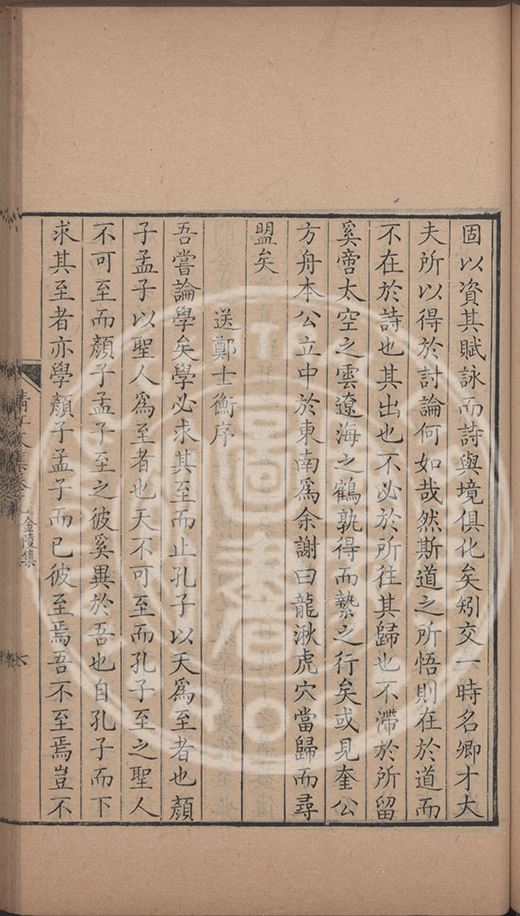 固以資其賦詠而詩與境俱化矣矧交一時名卿才大
夫所以得於討論何如哉然斯道之所悟則在於道而
不在於詩也其出也不必於所往其歸也不滯於所留
奚啻太空之雲遼海之鶴孰得而縶之行矣或見奎公
方舟本公立中於東南爲余謝曰龍湫虎穴當歸而尋
盟矣
送鄭士衡序
吾嘗論學矣學必求其至而止孔子以天爲至者也顏
子孟子以聖人爲至者也天不可至而孔子至之聖人
不可至而顏子孟子至之彼奚異於吾也自孔子而下
求其至者亦學顏子孟子而已彼至焉吾不至焉豈不
清江文集卷
金陵集